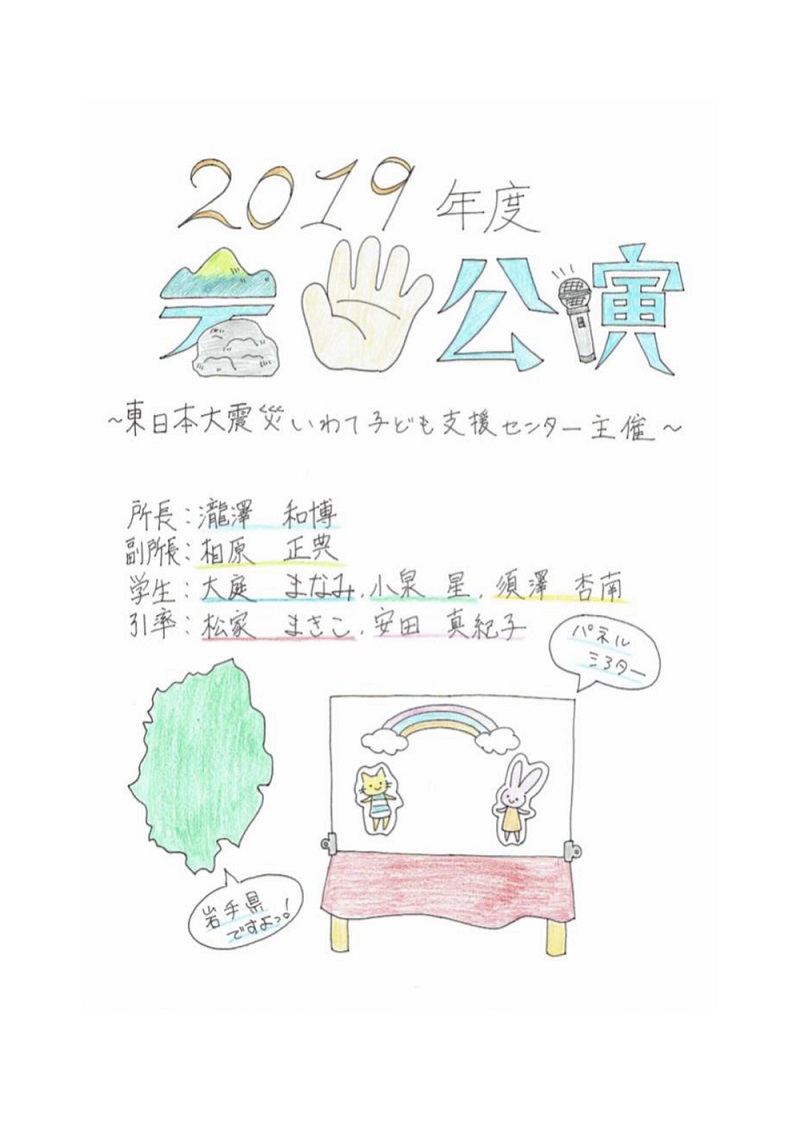 2019年度
岩手公演
~東日本大震災いわて子ども支援センター主催~
所長:瀧澤 和博
副所長:相原 正典
学生:大庭 まなみ,小泉 星,須澤 杏南
引率:松家 まきこ,安田 真紀子
パネル
シアター
岩手県
ですよっ!